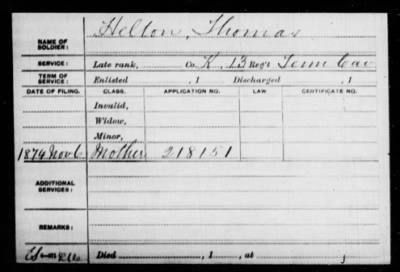 NAME OF SOLDIER: Helton, Thomas
SERVICE: Late rank, Co. K, 13 Reg't Tenn Cav
TERM OF SERVICE: Enlisted , 1 Discharged , 1
DATE OF FILING. CLASS. APPLICATION NO. LAW. CERTIFICATE NO.
Invalid,
Widow,
Minor,
1874 Nov 6 Mother 218151
ADDITIONAL SERVICES:
REMARKS:
Died , 1 , at